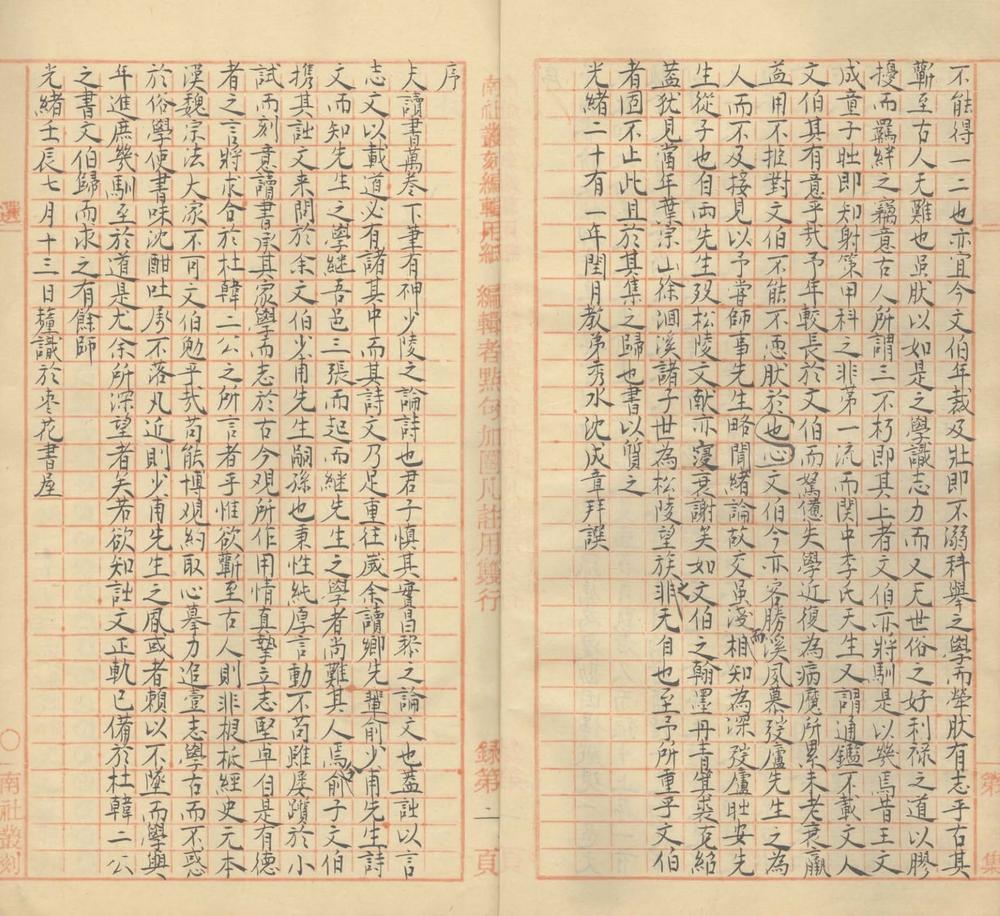 不能得一二也亦宜今文伯年裁及壯即不溺科舉之學而犖肰有志乎古其
蘄至古人无難也虽肰以如是之學識志力而又无世俗之好利祿之道以膠
擾而羈絆之竊意古人所謂三不朽即其上者文伯亦將馴是以幾焉昔王文
成童子時即知射策甲科之非第一流而関中李氏天生又謂通鑑不載文人
文伯其有意乎哉予年較長於文伯而駑儓失學近復為病魔所累未老衰羸
益用不推對文伯不能不恧肰於也心文伯今亦客勝溪風慕弢廬先生之為
人而不及接見以予嘗師事先生略聞緒論故交虽淺而相知為深弢廬昢安先
生從子也自兩先生歿松陵文献亦寖衰謝矣如文伯之翰墨丹青箕裘克紹
蓋犹見當年葉深山徐洄溪諸子世為松陵望族非无自也至予所重乎文伯
者固不止此且於其集之歸也書以質之
光緒二十有一年閏月教弟秀水沈成章拜譔
南社叢刻編輯用紙 編輯者點句加圈凡註用雙行
錄第二頁
序
夫讀書萬卷下筆有神少陵之論詩也君子慎其實昌黎之論文也蓋詘以言
志文以載道必有諸其中而其詩文乃足重往歲余讀鄉先輩俞少甫先生詩
文而知先生之學継吾邑三張而起而継先生之學者尚難其人焉俞子文伯
携其詘文来問於余文伯少甫先生嗣孫也秉性純厚言動不苟雖屡躓於小
試而刻意讀書承其家學而志於古今观所作用情真摯立志堅卓自是有德
者之言將求合於杜韓二公之所言者乎惟欲蘄至古人則非根柢經史元本
漢魏宗法大家不可文伯勉乎哉苟能博观約取心摹力追壹志學古而不惑
於俗學使書味沈酣吐屬不落凡近則少甫先生之風或者賴以不墜而學與
年進庶幾馴至於道是尤余所深望者矣若欲知詘文正軌已備於杜韓二公
之書文伯歸而求之有餘師
光緒壬辰七月十三日 識於枣花書屋
選
南社叢刻
第
集